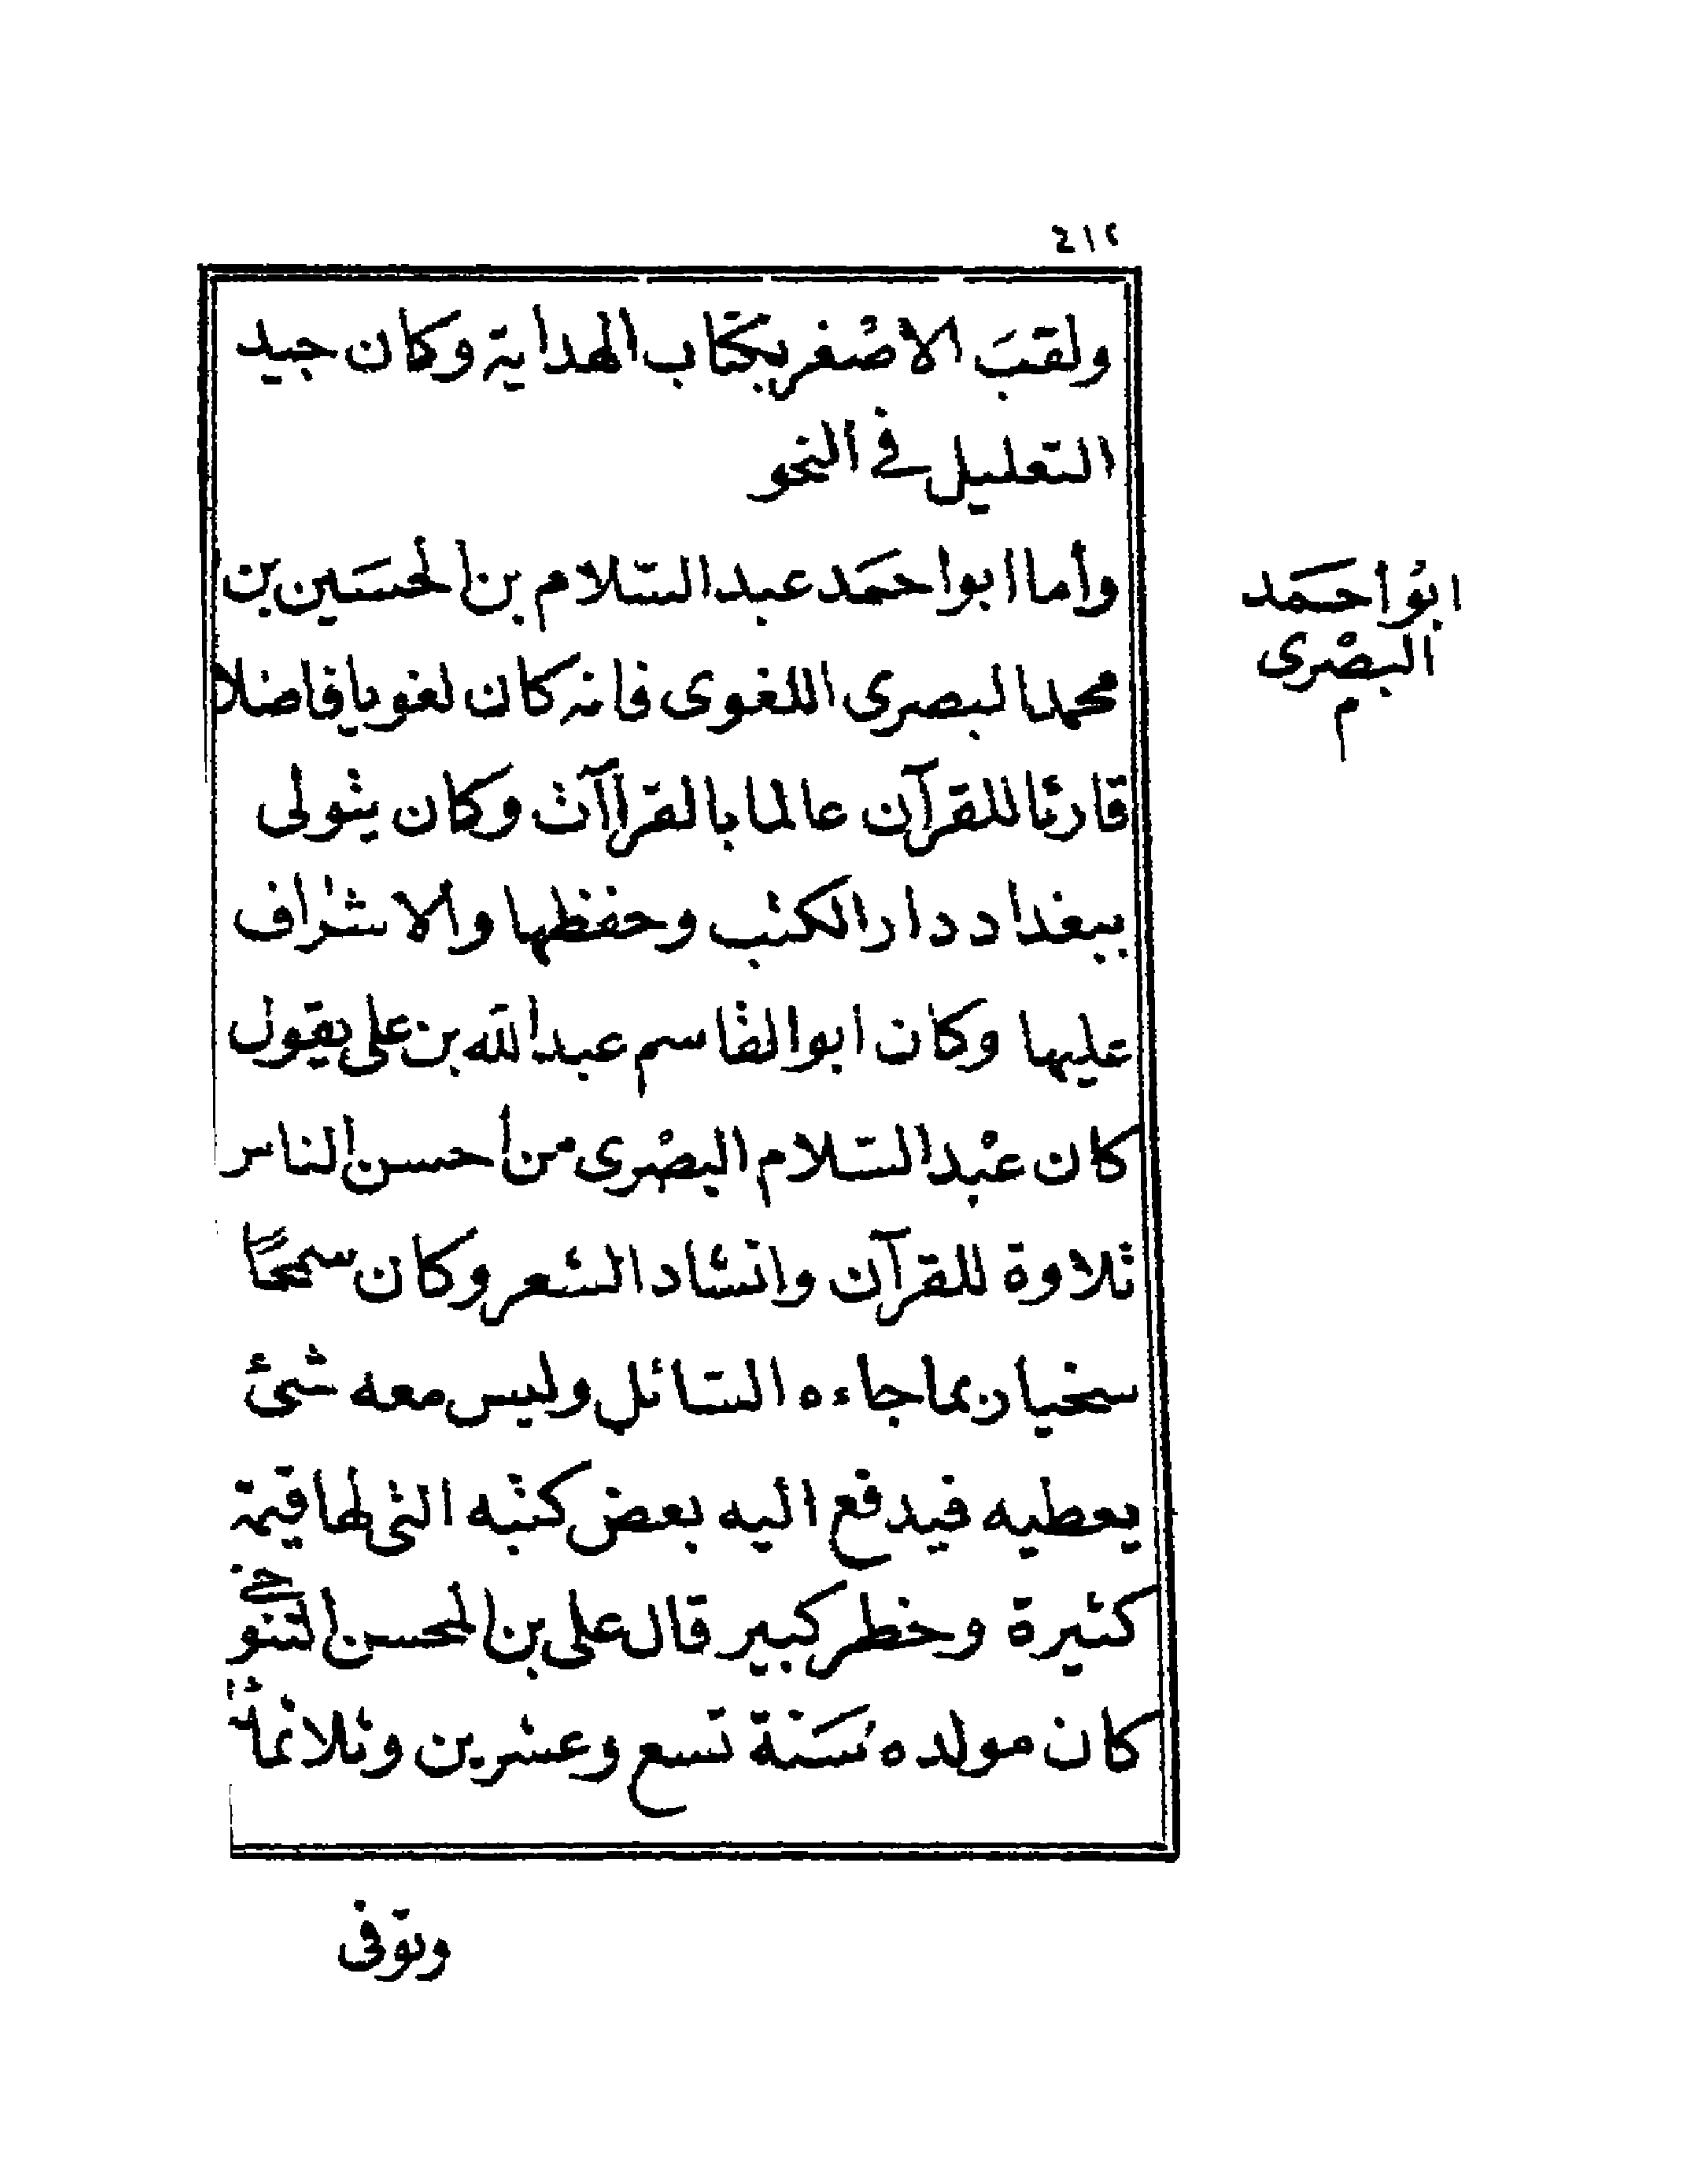 ٤١٢
ولقبَ الاصْغر بكتاب الهداية وكان جيد
التعليل في النحو
وأما ابو احمَد عبد السّلام بن الحسَين بن
محمد البصرى اللغوى فانه كان لغويا فاضلا
قارئا للقرآن عالما بالقراآت وكان يتولى
ببغداد دار الكتب وحفظها والاشراف
عليها وكان ابو القاسم عبد الله بن على يقول
كان عبْد السّلام البصْرى من أحسن الناس
تلاوة للقرآن وانشاد الشعر وكان سمحًا
سخيا ربما جاءه السّائل وليس معه شئ
يعطيه فيدفع اليه بعض كتبه التى لها قيمة
كثيرة وخطر كبير قال على بن المحسن التنوخى
كان مولده سَنة تسع وعشرين وثلاثمائة
ابو أحمَد
البصْرى
م
وتوفى